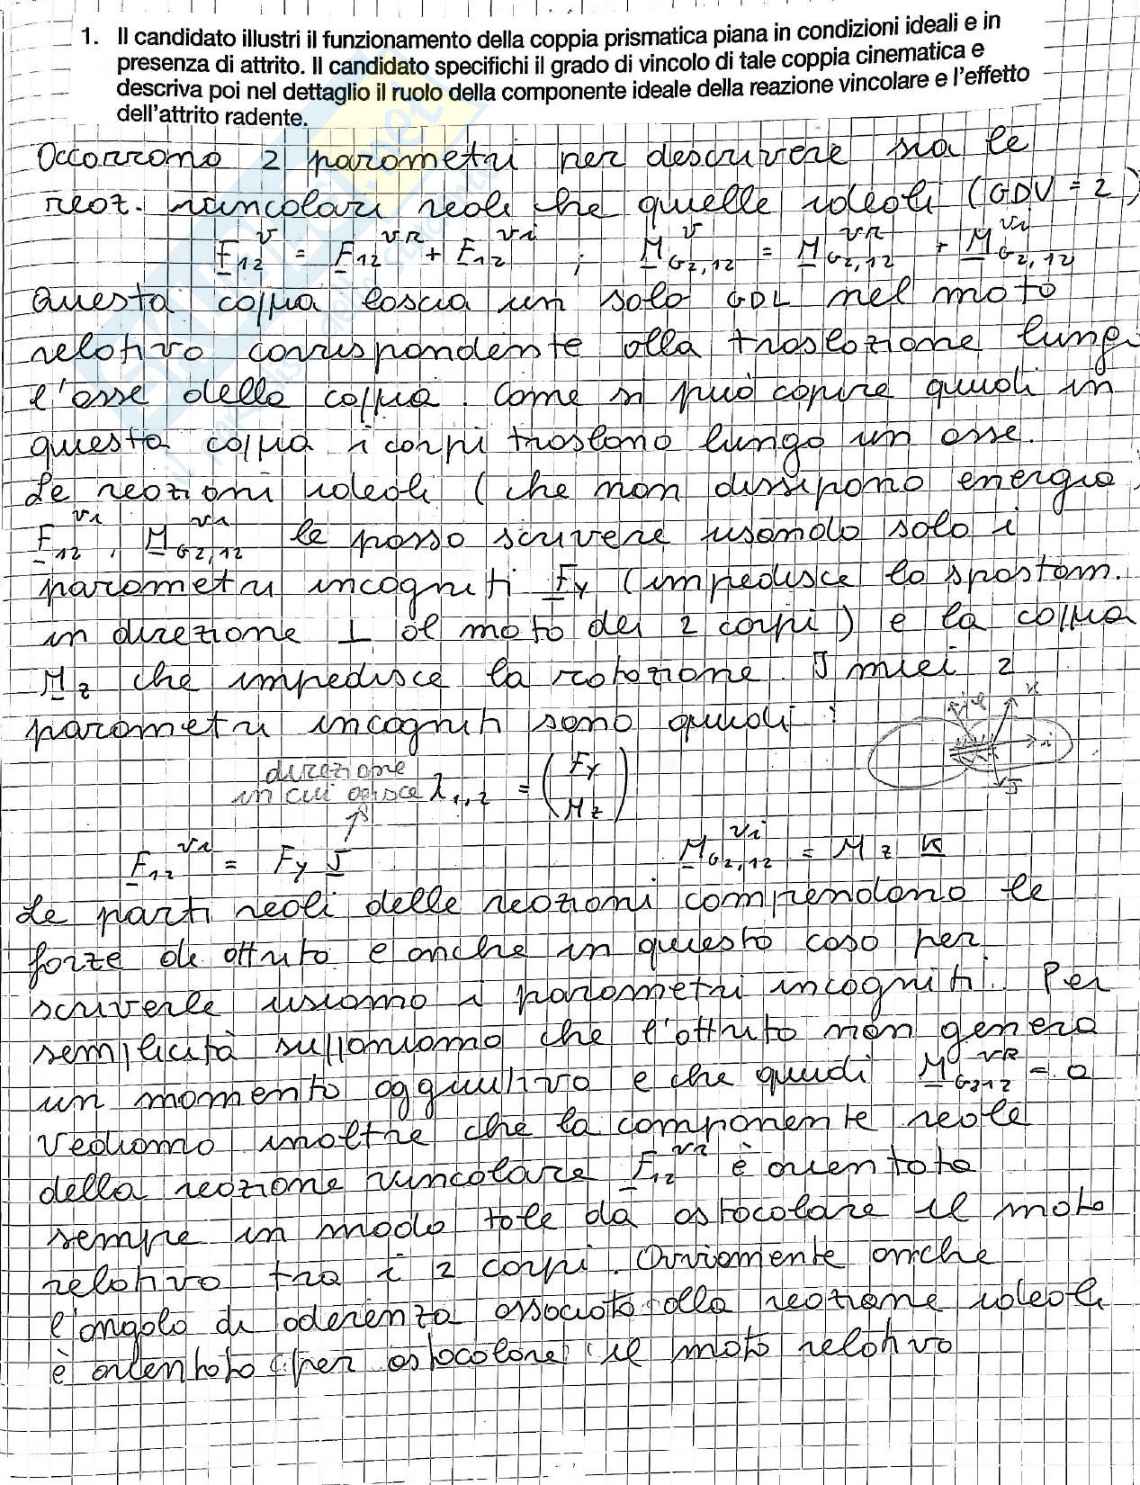 1. Il candidato illustri il funzionamento della coppia prismatica piana in condizioni ideali e in
presenza di attrito. Il candidato specifichi il grado di vincolo di tale coppia cinematica e
descriva poi nel dettaglio il ruolo della componente ideale della reazione vincolare e l'effetto
dell'attrito radente.
Occorrono 2 parametri per descrivere sia le
reaz. vincolari reali che quelle ideali (GDV = 2)
F₁₂^v = F₁₂^vR + F₁₂^vi ; M_G2,12^v = M_G2,12^vR + M_G2,12^vi
Questa coppia lascia un solo GDL nel moto
relativo corrispondente alla traslazione lungo
l'asse della coppia. Come si può capire quindi in
questa coppia i corpi traslano lungo un asse.
Le reazioni ideali (che non dissipano energia)
F₁₂^vi, M_G2,12^vi le posso scrivere usando solo i
parametri incogniti Fy (impedisce lo spostam.
in direzione ⊥ al moto dei 2 corpi) e la coppia
Mz che impedisce la rotazione. I miei 2
parametri incogniti sono quindi:
direzione
in cui agisce λ₁,₂ = (Fy
Mz)
F₁₂^vi = Fy J M_G2,12^vi = Mz K
Le parti reali delle reazioni comprendono le
forze di attrito e anche in questo caso per
scriverle usiamo i parametri incogniti. Per
semplicità supponiamo che l'attrito non genera
un momento aggiuntivo e che quindi M_G2,12^vR = 0
Vediamo inoltre che la componente reale
della reazione vincolare F₁₂^vR è orientata
sempre in modo tale da ostacolare il moto
relativo tra i 2 corpi. Ovviamente anche
l'angolo di aderenza associato alla reazione ideale
è orientato per ostacolare il moto relativo